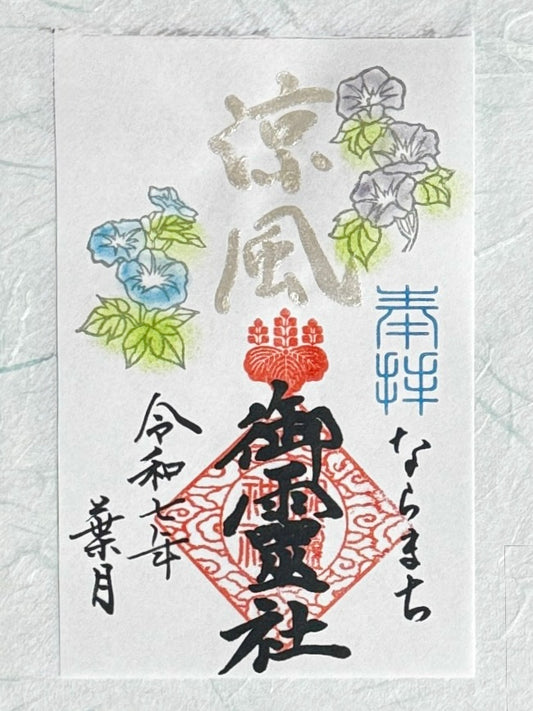 涼風
奉拝
ならまち
御霊社
令和七年
葉月